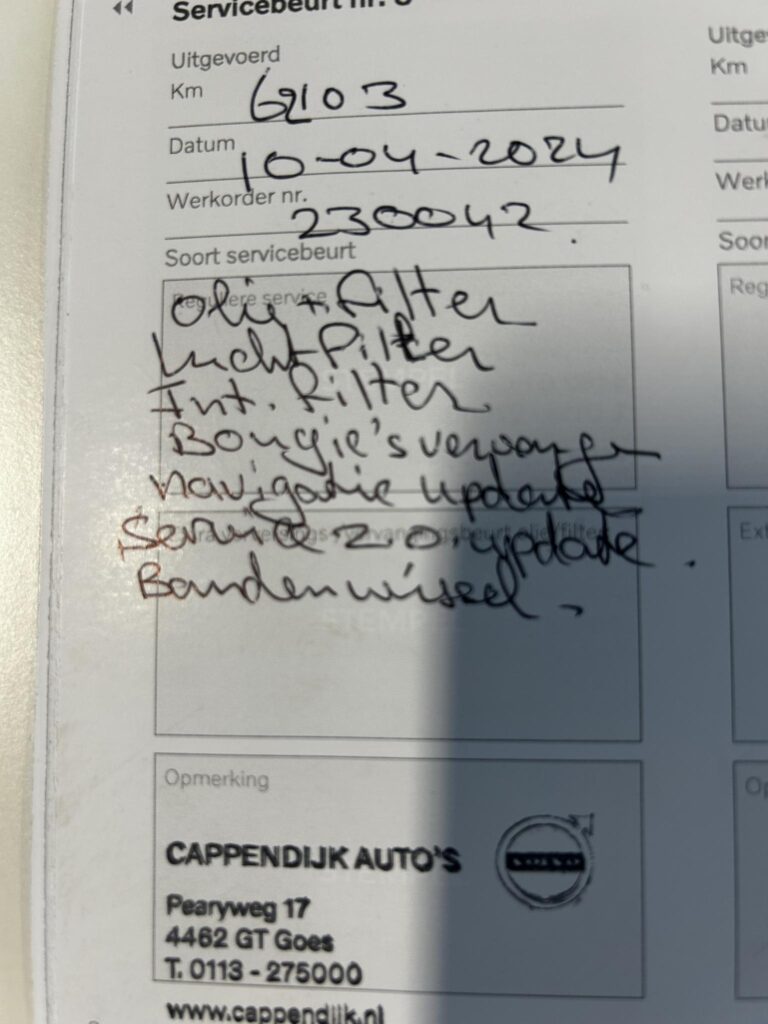 Servicebeurt nr.
Uitgevoerd
Km 62103
Datum 10-04-2024
Werkorder nr. 230042
Soort servicebeurt
Reguliere service
Olie + Filter
Luchtfilter
Int. Filter
Bougie's vervangen
navigatie update
Service 2.0. update.
Bandenwissel.
STEMPEL
Opmerking
CAPPENDIJK AUTO'S
VOLVO
Pearyweg 17
4462 GT Goes
T. 0113 - 275000
www.cappendijk.nl
Uitge
Km
Datu
Werk
Soor
Reg
Ext
Op